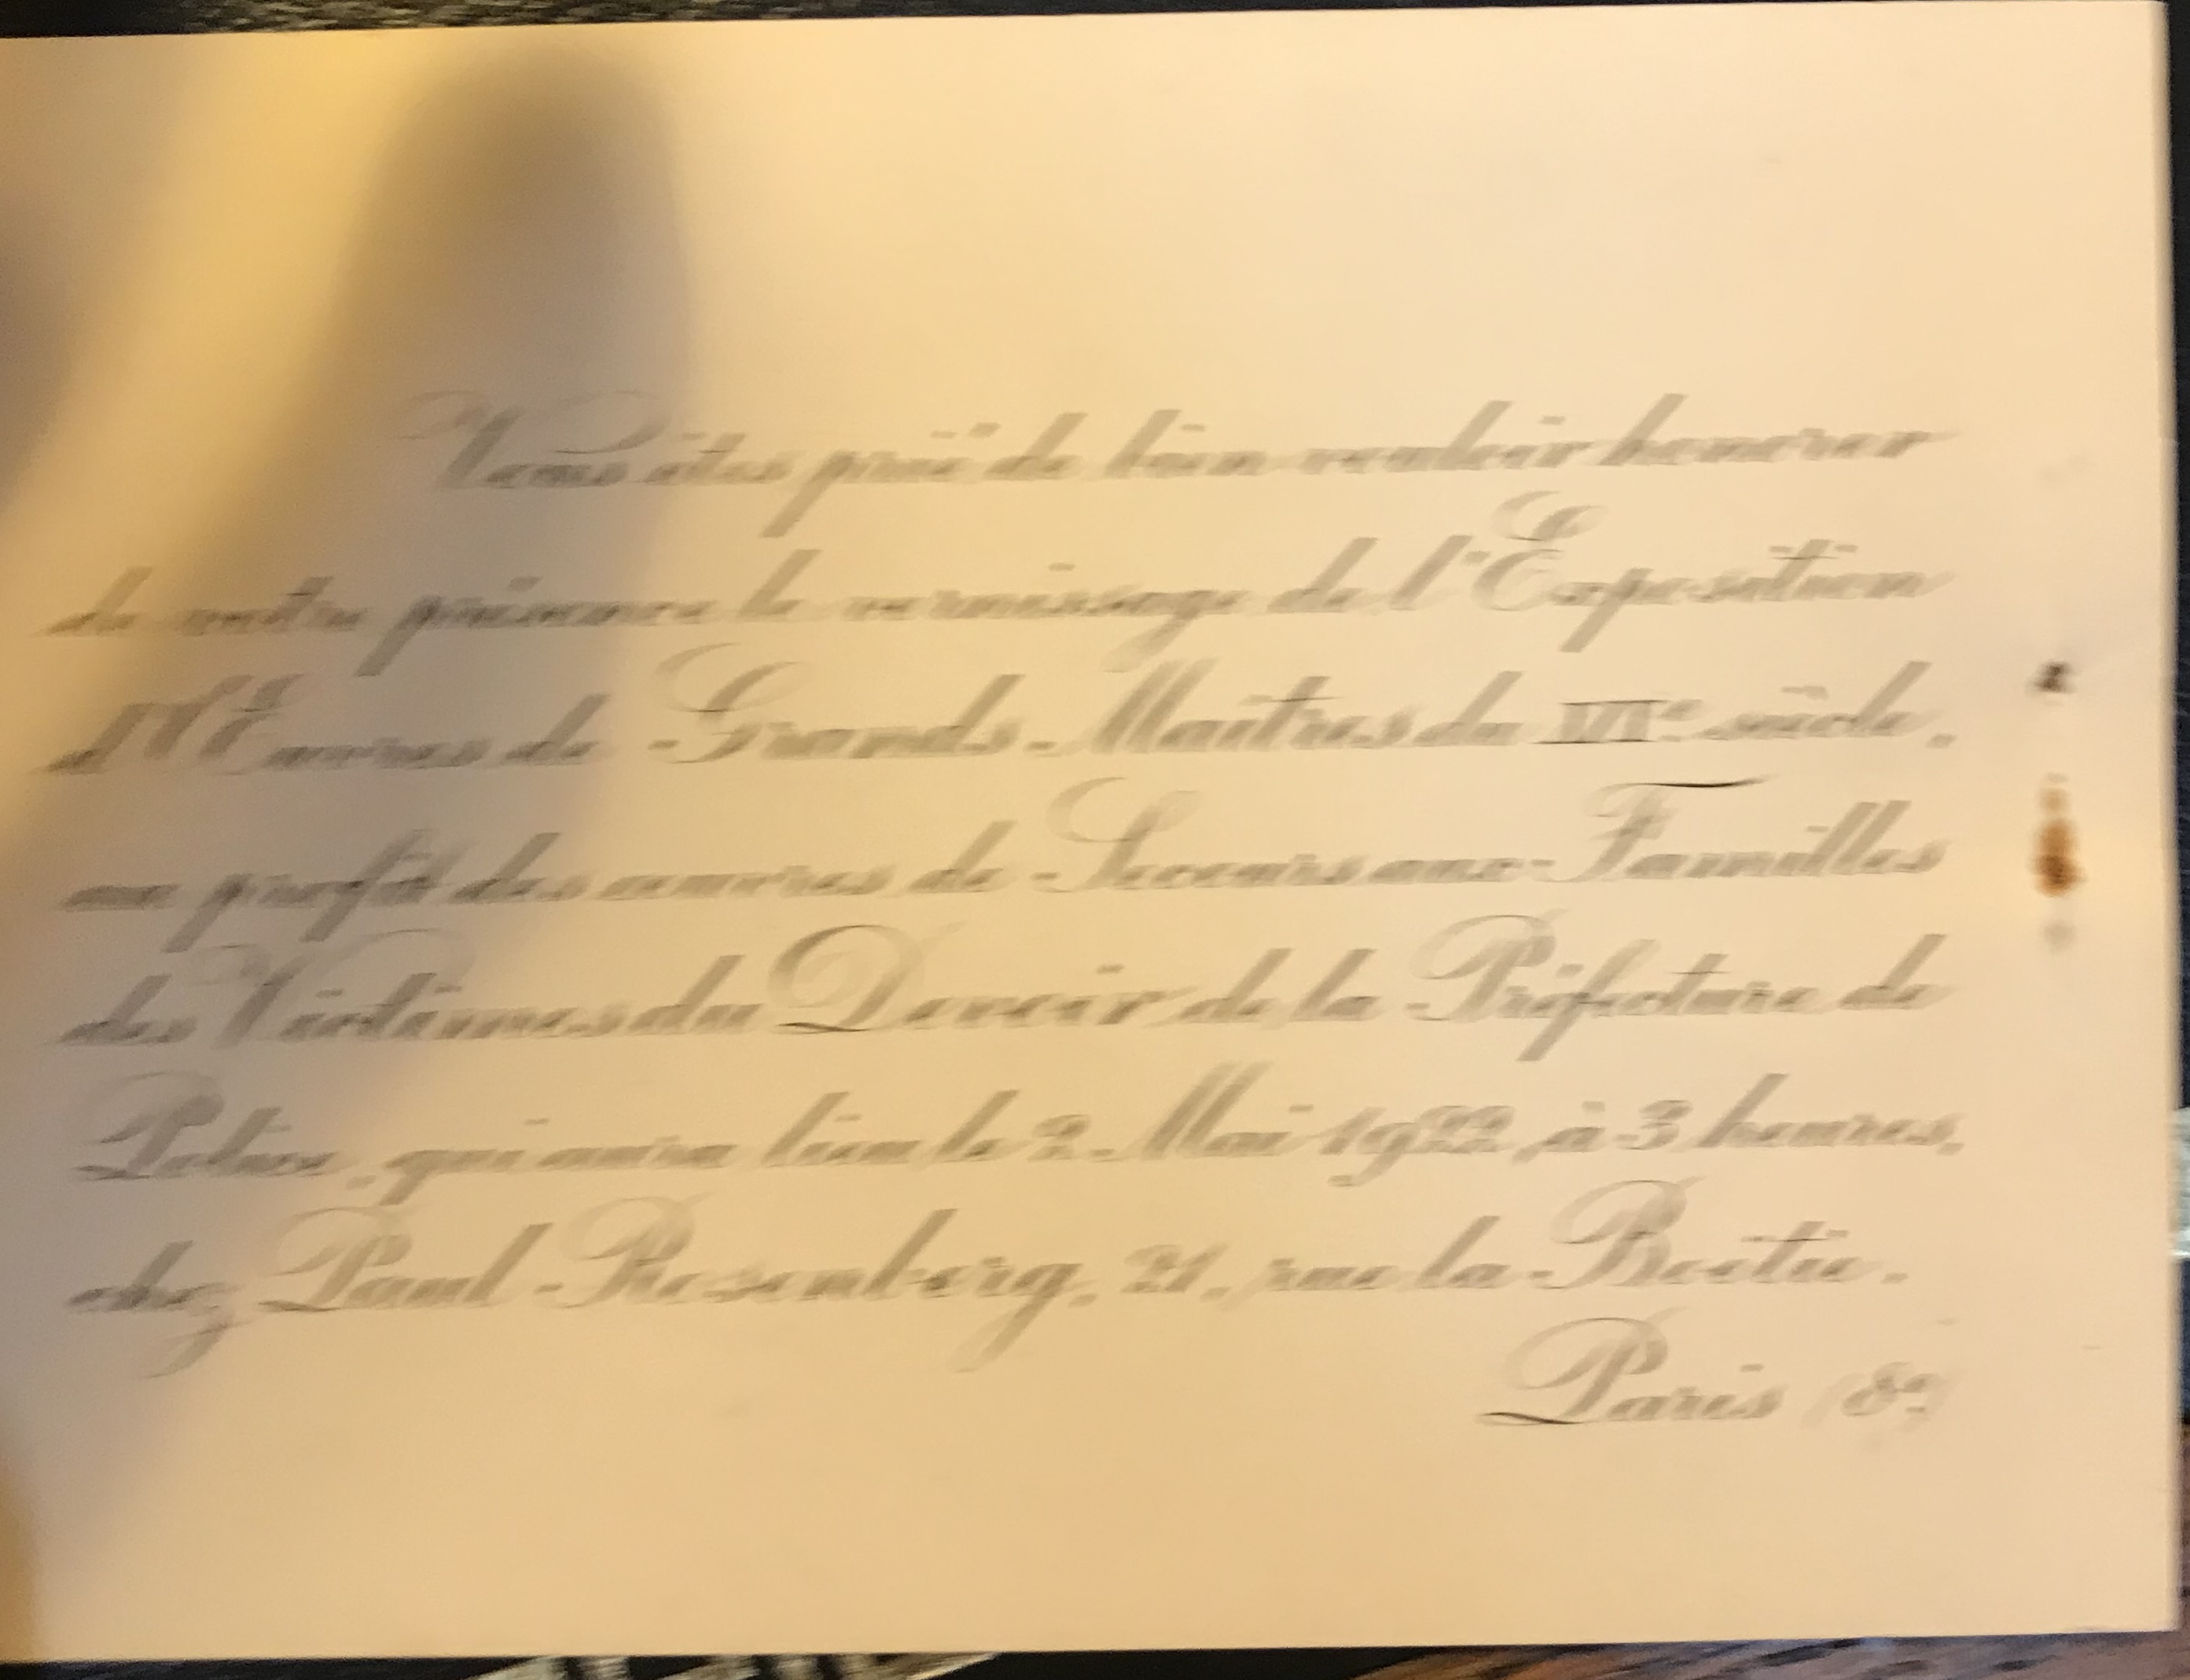 Vous êtes prié de bien vouloir honorer
de votre présence le vernissage de l'Exposition
d'Œuvres de Grands Maîtres du siècle,
au profit des œuvres de Secours aux Familles
des Victimes du Devoir de la Préfecture de
Police, qui aura lieu le 2 Mai 1922, à 3 heures,
chez Paul Rosenberg, 21, rue la Boëtie.
Paris